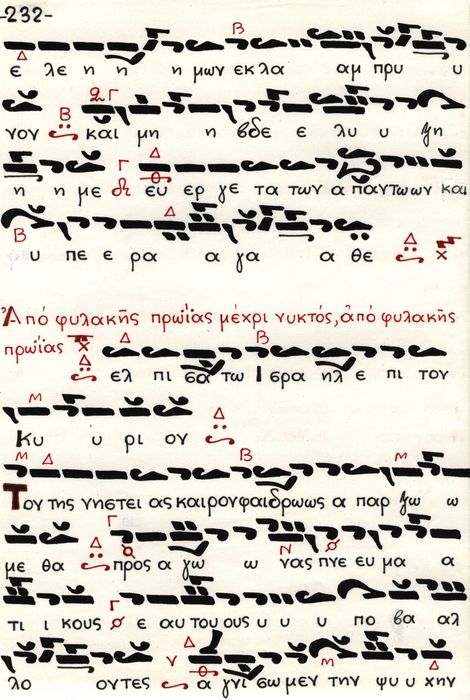 -232-
ε λε η η η μων εκλα αμ πρυ υ
νον και μη η βδε ε λυ υ ξη
η η με ευ ερ γε τα των α πάντωων και
υ πε ε ρα α γα α α θε
Ἀπό φυλακῆς πρωΐας μέχρι νυκτός, ἀπό φυλακῆς
πρωΐας
ελ πι σα τω Ι σρα ηλ ε πι τον
Κυ υ ρι ον
Του της νηστει ας καιρουφαιδρωως α παρ ξω ω
με θα προς α γω ω νας πνε ευ μα α
τι ι κους ε αυ του ους υ υ υ πο βα αλ
λο ουτες α γνι σω μεν την ψυ υ χην